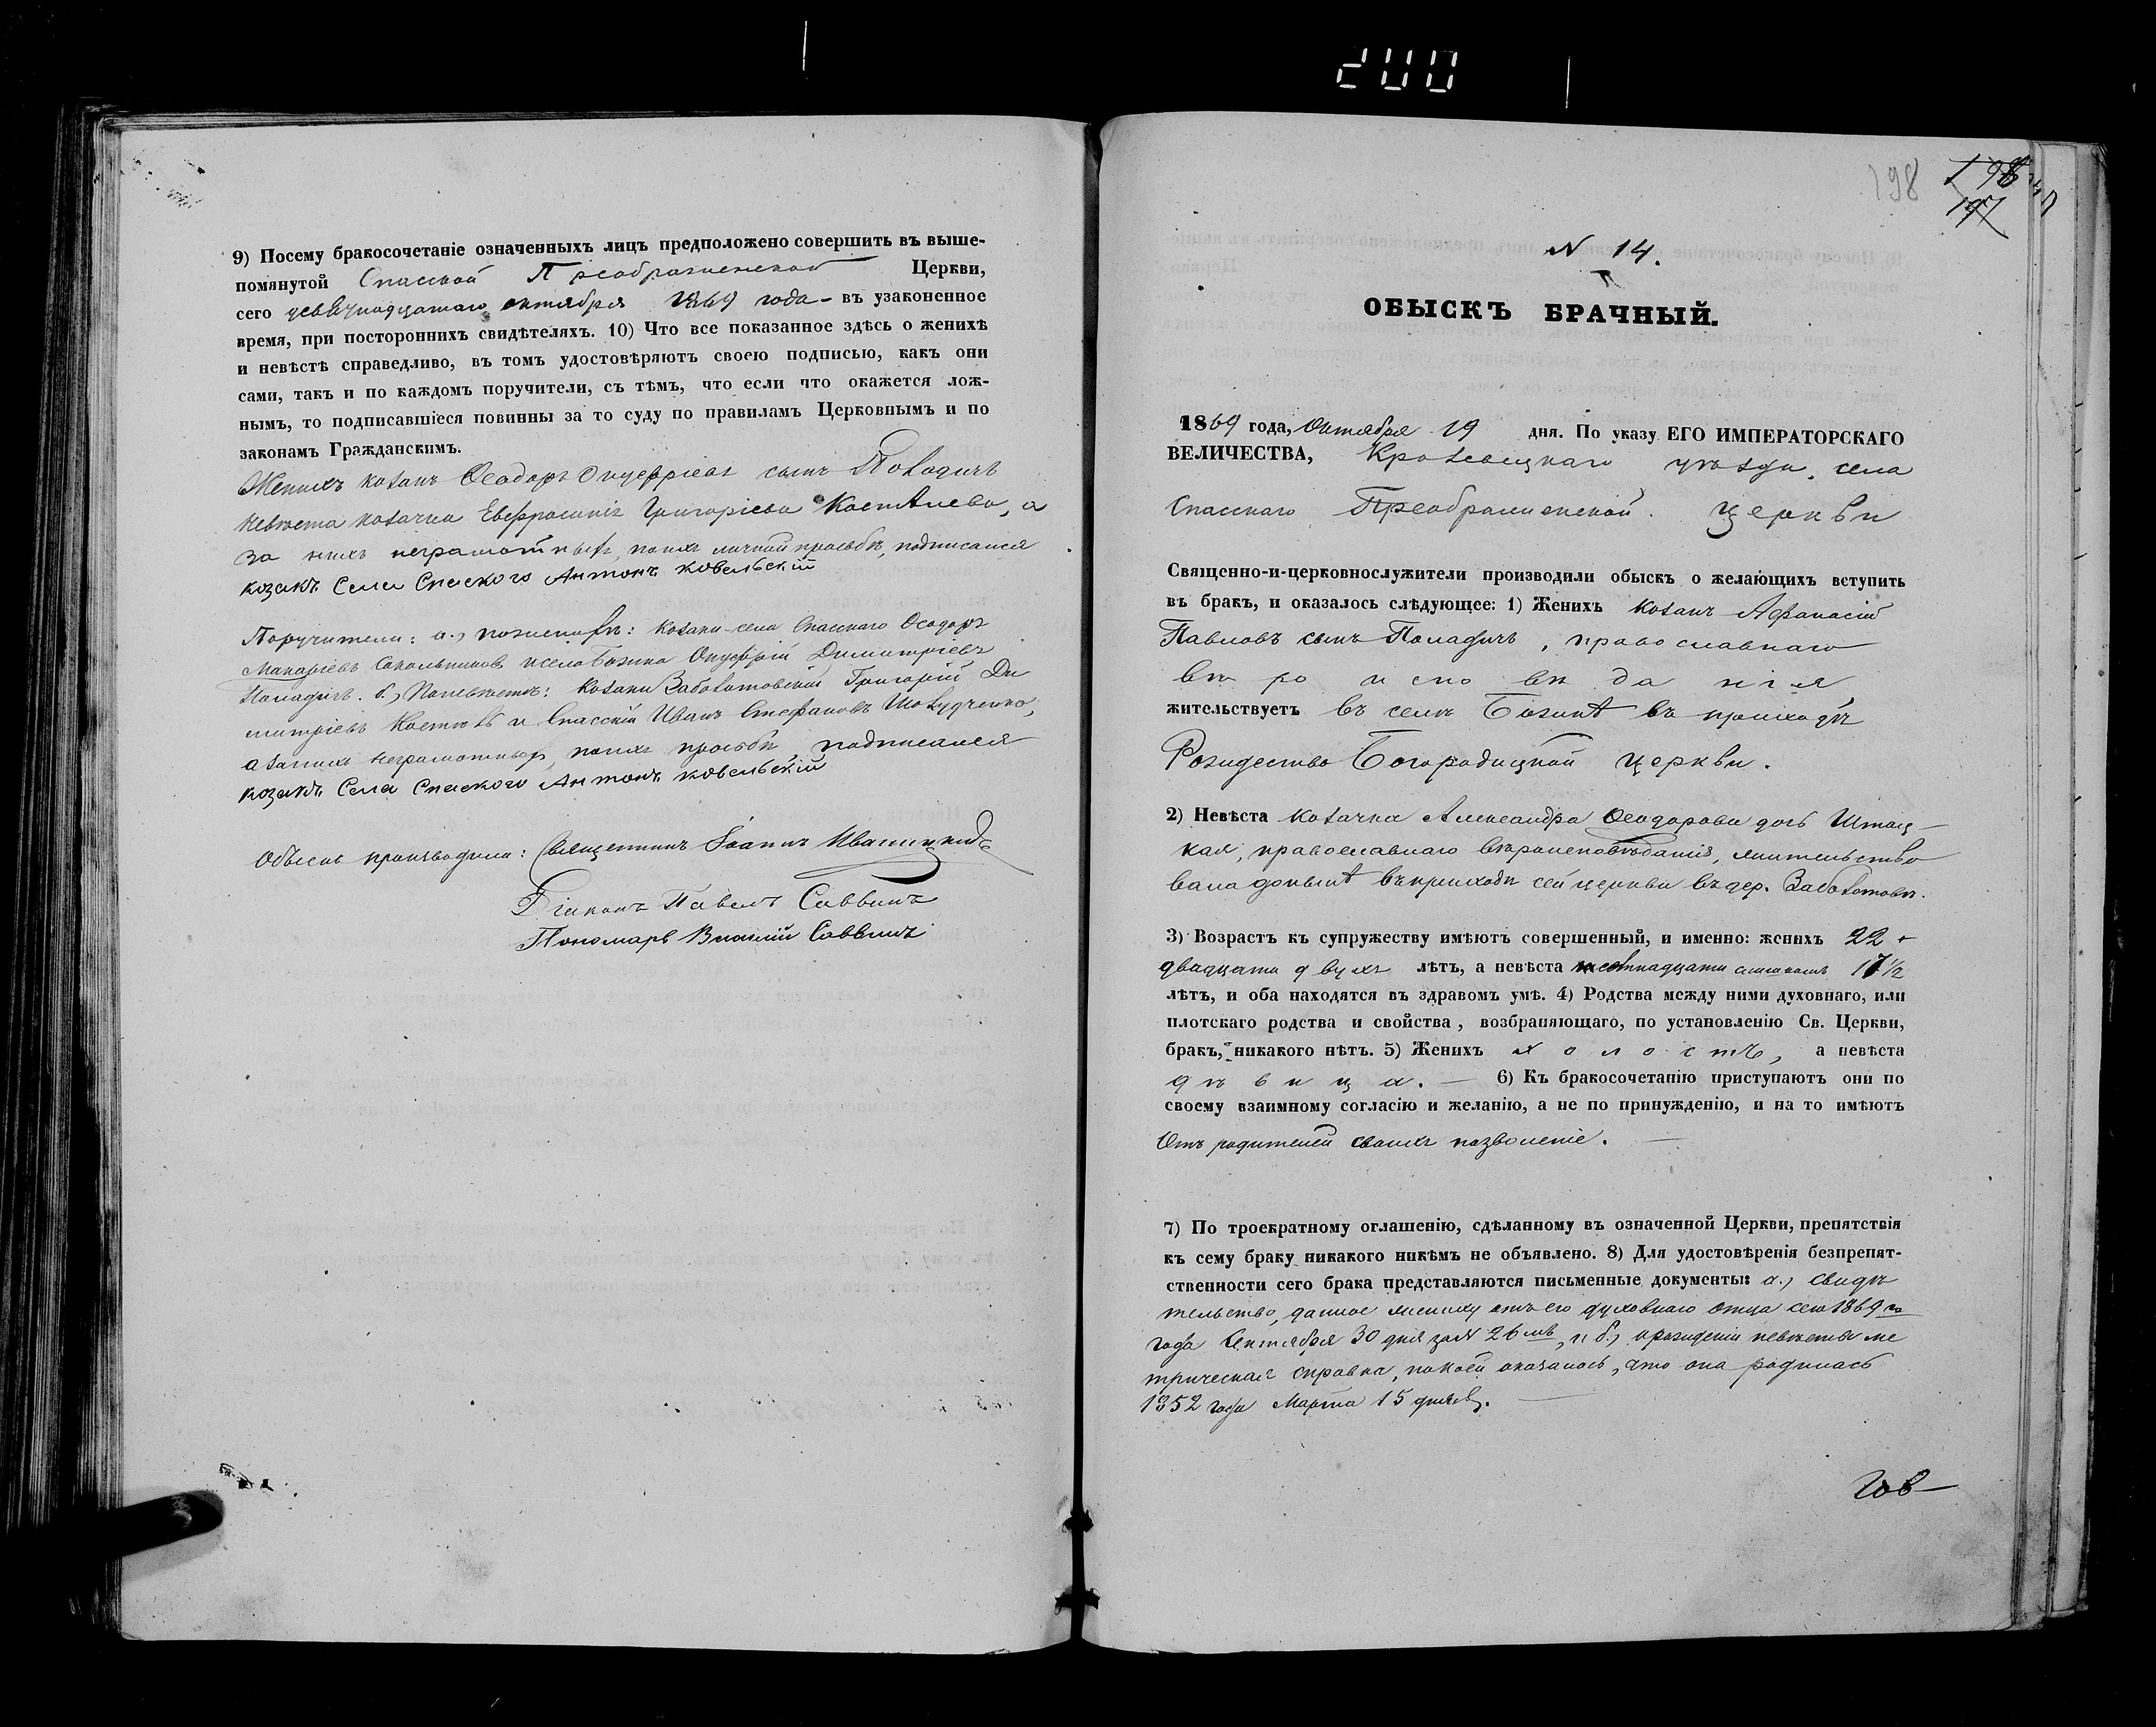 200
9) Посему бракосочетаніе означенныхъ лицъ предположено совершить въ выше-
помянутой Спасской Преображенской Церкви,
сего девятнадцатаго октября 1869 года - въ узаконенное
время, при постороннихъ свидѣтеляхъ. 10) Что все показанное здѣсь о женихѣ
и невѣстѣ справедливо, въ томъ удостовѣряютъ своею подписью, какъ они
сами, такъ и по каждомъ поручители, съ тѣмъ, что если что окажется лож-
нымъ, то подписавшіеся повинны за то суду по правиламъ Церковнымъ и по
законамъ Гражданскимъ.
Женихъ козакъ Ѳеодоръ Онуфріевъ сынъ
невѣста козачка Евфросинія Григоріева Костѣева, а
за нихъ неграмотныхъ, по ихъ личной просьбѣ, подписался
козакъ Села Спаского Антонъ Ковельскій
Поручители: а., по женихѣ: козаки села Спасскаго Ѳеодоръ
Макаріевъ Сокольниковъ и села Божка Онуфрій Димитріевъ
Паладичъ. б., По невѣстѣ: козаки Заболотовскій Григорій Ди
митріевъ и Спасскій Иванъ Стефановъ
а за нихъ неграмотныхъ, по ихъ просьбѣ, подписался
козакъ Села Спаского Антонъ Ковельскій
Обыскъ производили: Священникъ Іоаннъ Иваницкій
Діаконъ Павелъ Саввинъ
Пономарь Василій Саввинъ
198
198
197
N 14.
ОБЫСКЪ БРАЧНЫЙ.
1869 года, Октября 19 дня. По указу ЕГО ИМПЕРАТОРСКАГО
ВЕЛИЧЕСТВА, Кролевецкаго уѣзда, села
Спасскаго Преображенской Церкви
Священно-и-церковнослужители производили обыскъ о желающихъ вступить
въ бракъ, и оказалось слѣдующее: 1) Женихъ козакъ Афанасій
Павловъ сынъ Паладичъ, православнаго
вѣроисповѣданія,
жительствуетъ въ селѣ въ приходѣ
Рождество Богородицкой церкви.
2) Невѣста козачка Александра Ѳеодорова дочь Штац-
кая, православнаго вѣроисповѣданія, жительство
вала донынѣ въ приходѣ сей церкви въ дер. Заболотовѣ.
3) Возрастъ къ супружеству имѣютъ совершенный, и именно: женихъ 22
двадцати двухъ лѣтъ, а невѣста семнадцати съ 17½
лѣтъ, и оба находятся въ здравомъ умѣ. 4) Родства между ними духовнаго, или
плотскаго родства и свойства, возбраняющаго, по установленію Св. Церкви,
бракъ, никакого нѣтъ. 5) Женихъ холостъ, а невѣста
дѣвица. — 6) Къ бракосочетанію приступаютъ они по
своему взаимному согласію и желанію, а не по принужденію, и на то имѣютъ
Отъ родителей своихъ позволеніе. —
7) По троекратному оглашенію, сдѣланному въ означенной Церкви, препятствія
къ сему браку никакого никѣмъ не объявлено. 8) Для удостовѣренія безпрепят-
ственности сего брака представляются письменные документы: а., свидѣ
тельство, данное жениху отъ его духовнаго отца сего 1869 го
года Сентября 30 дня за № 26 мъ, и б., о рожденіи невѣсты ме
трическая справка, по коей оказалось, что она родилась
1852 года Марта 15 дня. —